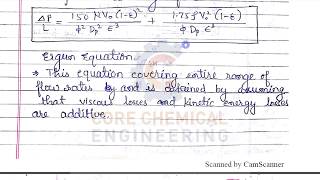 ΔP/L = 150 μV₀ (1-ε)² / φ² Dp² ε³ + 1.75 ρV₀² (1-ε) / φ Dp ε³
Ergun Equation
→ This equation covering entire range of
flow rates by and is obtained by assuming
that viscous losses and kinetic energy losses
are additive.
CORE CHEMICAL
ENGINEERING
Scanned by CamScanner